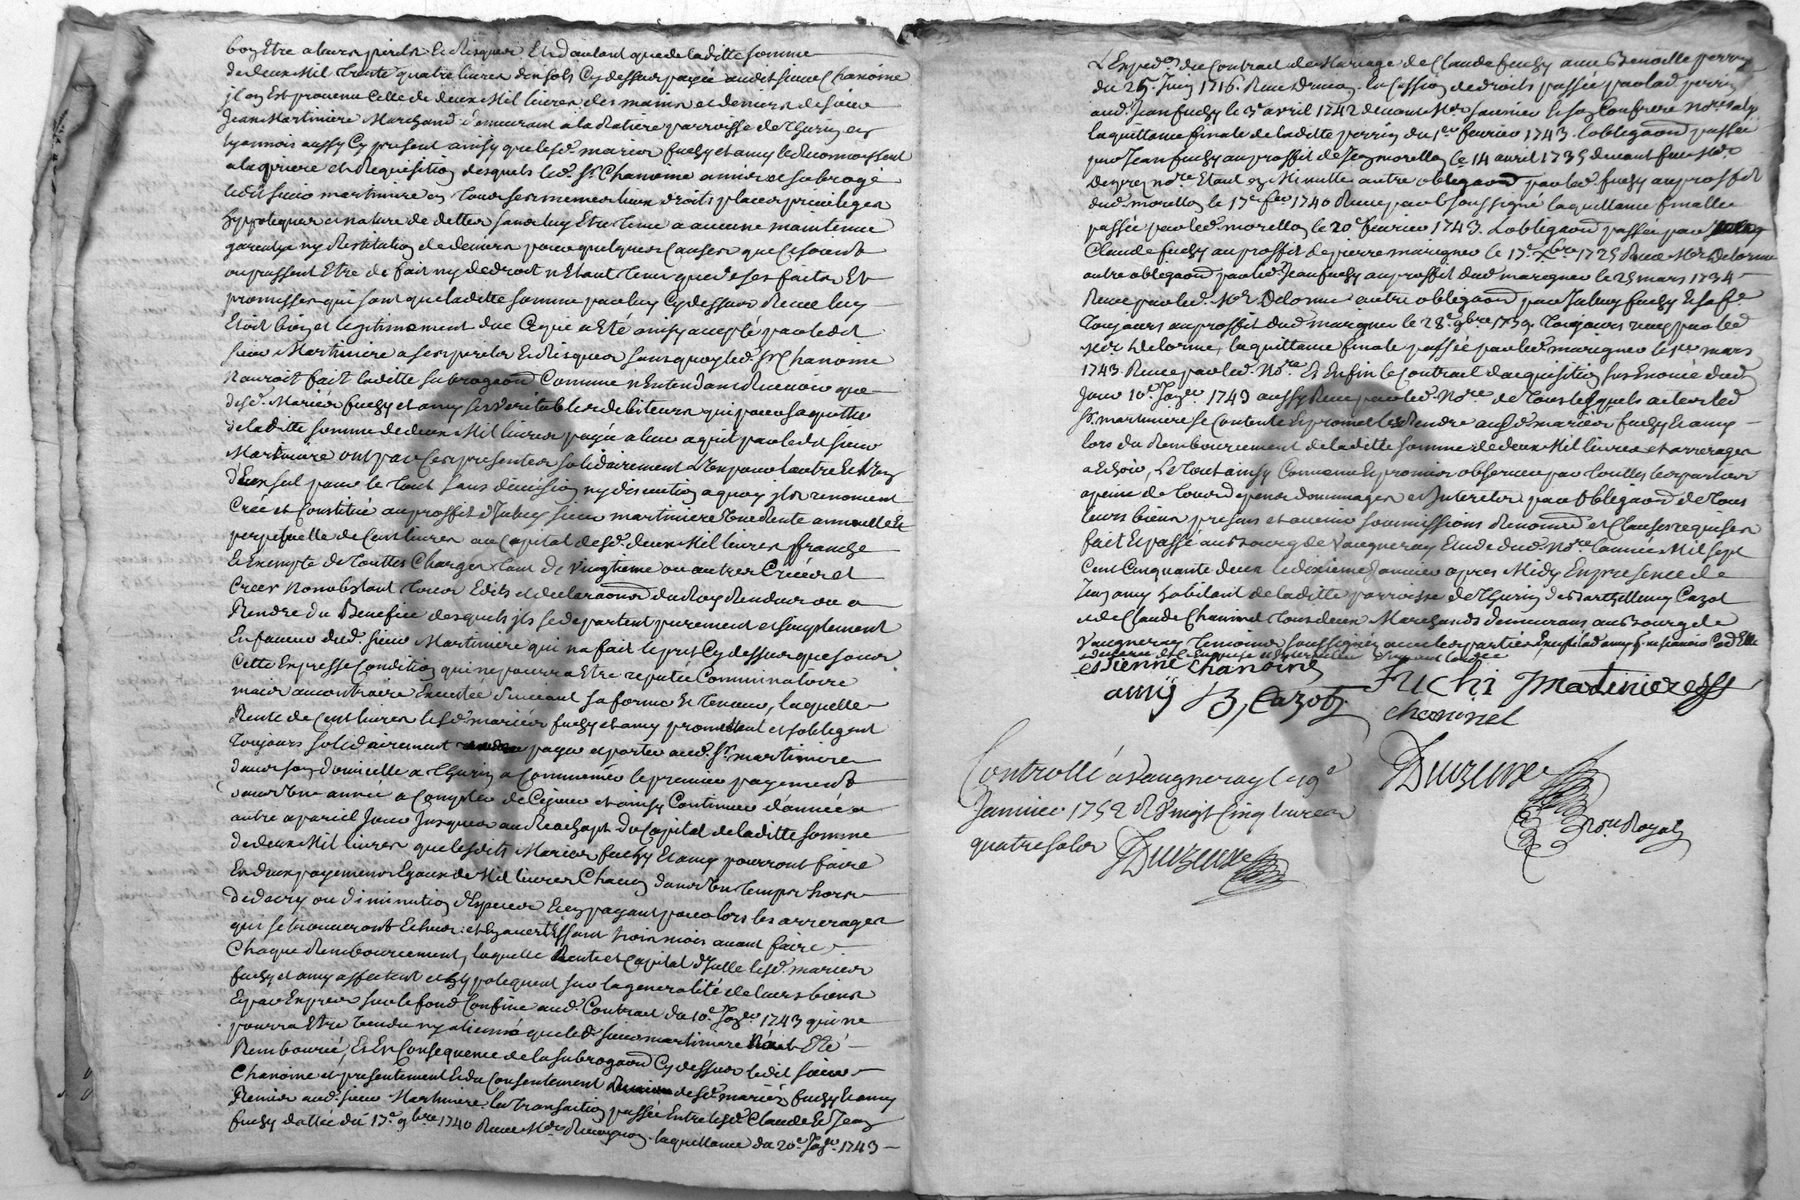 bon Etre a leurs perils & Risques Et d'autant que de laditte somme
de deux Mil Trente quatre livres dix sols Cy dessus payée audit sieur Chanoine
jl en Est provenu Celle de deux Mil livres des mains et deniers de sieur
Jean Martiniere Marchand demeurant a la Ratiere parroisse de Thurin en
Lyonnois aussy Cy present ainsy que lesd. mariés fuchy et amy le Reconnoissent
a la priere et Requisition desquels led. Sr. Chanoine a mis et subrogé
ledit sieur martiniere en Tous ses memes lieux droits places privileges
hypoteques et nature de dettes sans luy Etre Tenu a aucune maintenue
garentye ny Restitution de deniers pour quelques Causes que Ce soient
ou pussent Etre de fait ny de droit n'Etant Tenu que de ses faits Et
promesses qui sont que laditte somme par luy Cy dessus Receue luy
Etoit bien et legitimement due Ce qui a Eté ainsy accepté par ledit
sieur Martiniere a ses perils & Risques sans quoy led. Sr. Chanoine
n'auroit fait laditte subrogaon Comme n'Entendant Recevoir que
desd. Mariés fuchy et amy ses veritables debiteurs qui pour s'aquitter
de laditte somme de deux Mil livres payée a leur aquit par ledit sieur
Martiniere ont par Ces presentes solidairement L'un pour l'autre & L'un
d'Eux seul pour le Tout sans division ny discution a quoy jls renoncent
Créé et Constitué au proffit d'Jceluy sieur martiniere Une Rente annuelle Et
perpetuelle de Cent livres au Capital desd. deux Mil livres franche
& Exempte de Touttes Charges Tant de vingtieme ou autres Créés et
a Créer nonobstant Tous Edits et declaraons du Roy Rendues ou a
Rendre du Benefice desquels jls se departent purement et simplement
En faveur dud. sieur Martiniere qui n'a fait le pret Cy dessus que sous
Cette Expresse Condition qui ne pourra Etre reputée Comminatoire
mais au contraire Executée suivant sa forme & Teneur, laquelle
Rente de Cent livres lesd. mariés fuchy et amy promettent et s'obligent
Toujours solidairement payer et porter aud. Sr. martiniere
dans son domicille a Thurin a Commencer le premier payement
dans Une année a Compter de Ce jour et ainsy Continuer d'année a
autre a pareil Jour Jusques au Reachapt du Capital de laditte somme
de deux Mil livres que lesdits Mariés fuchy & amy pourront faire
En deux payements Egaux de Mil livres Chacun dans Un Temps hors
de decry ou diminution d'Especes & en payant pour lors les arrerages
qui se trouveront Echus: et En avertissant trois mois avant faire
Chaque Remboursement, laquelle Rente et Capital d'Jcelle lesd. mariés
fuchy et amy affectent et hypotequent sur la generalité de leurs biens
Et par Exprés sur le fond Confiné aud. Contract du 10e. Janer. 1743 qui ne
pourra Etre vendu ny aliené que led. sieur martiniere n'ait Eté
Remboursé, Et En Consequence de la subrogaon Cy dessus ledit sieur
Chanoine et presentement & du Consentement desd. mariés fuchy & amy
Remis aud. sieur Martiniere la Transaction passée Entre lesd. Claude & Jean
fuchy dattée du 17e. 9bre 1740 Receue Me. la quittance du 20e. Janer. 1743
L'Exped.on du Contract de Mariage de Claude fuchy avec Benoitte perrin
du 25. Juin 1716. La Cession de droits passée par lad. perrin
aud. Jean fuchy le 3e. avril 1742 devant Me. saunier & son Confrere notaires
la quittance finale de laditte perrin du 1er fevrier 1743. l'obligaon passée
par Jean fuchy au proffit de Jean morellon le 14 avril 1735 devant feu Me.
Dupré nore. Etant En Minutte autre obligaon par led. fuchy au proffit
dud. morellon le 17e. fer. 1740 Receue par le soussigné la quittance finalle
passée par led. morellon le 20e. fevrier 1743. L'obligaon passée par
Claude fuchy au proffit de pierre marigner le 17. Xbre. 1725 Receue Me. Delorme
autre obligaon par led. Jean fuchy au proffit dud. marigner le 25 mars 1734
Receue par led. Me. Delorme autre obligaon par Jceluy fuchy & sa fe.
Toujours au proffit dud. marigner le 28e. 9bre. 1739. Toujours receue par led.
Me. Delorme, la quittance finale passée par led. marigner le 1er mars
1743. Receue par led. Nore. Et Enfin le Contract d'acquisition sus Enoncé dud.
Jour 10e. Janer. 1743 aussy Receu par led. Nore. de Tous lesquels actes led.
Sr. martiniere se Contente & promet les Rendre ausd. mariés fuchy & amy
lors du Remboursement de laditte somme de deux Mil livres et arrerages
a Echoir, Le Tout ainsy Convenu & promis observer par Touttes les parties
a peine de Tous depens dommages et Interets par Obligaon de Tous
leurs biens presens et avenir soumissions Renoncons et Clauses requises
fait & passé au Bourg de Vaugneray Etude dud. Nore. l'année Mil sept
Cent Cinquante deux le dixieme Janvier apres Midy En presence de
Jean amy habitant de laditte parroisse de Thurin de Barthellemy Cazot
et de Claude Chaninel Tous deux Marchands demeurans au Bourg de
Vaugneray Temoins soussignés avec les parties Excepté lad. amy
estienne chanoine
amy B, Cazot FUchi Martiniere
chaninel
Controllé a Vaugneray le 19e
Janvier 1752 R Vingt Cinq livres
quatre sols
Nore. Royal